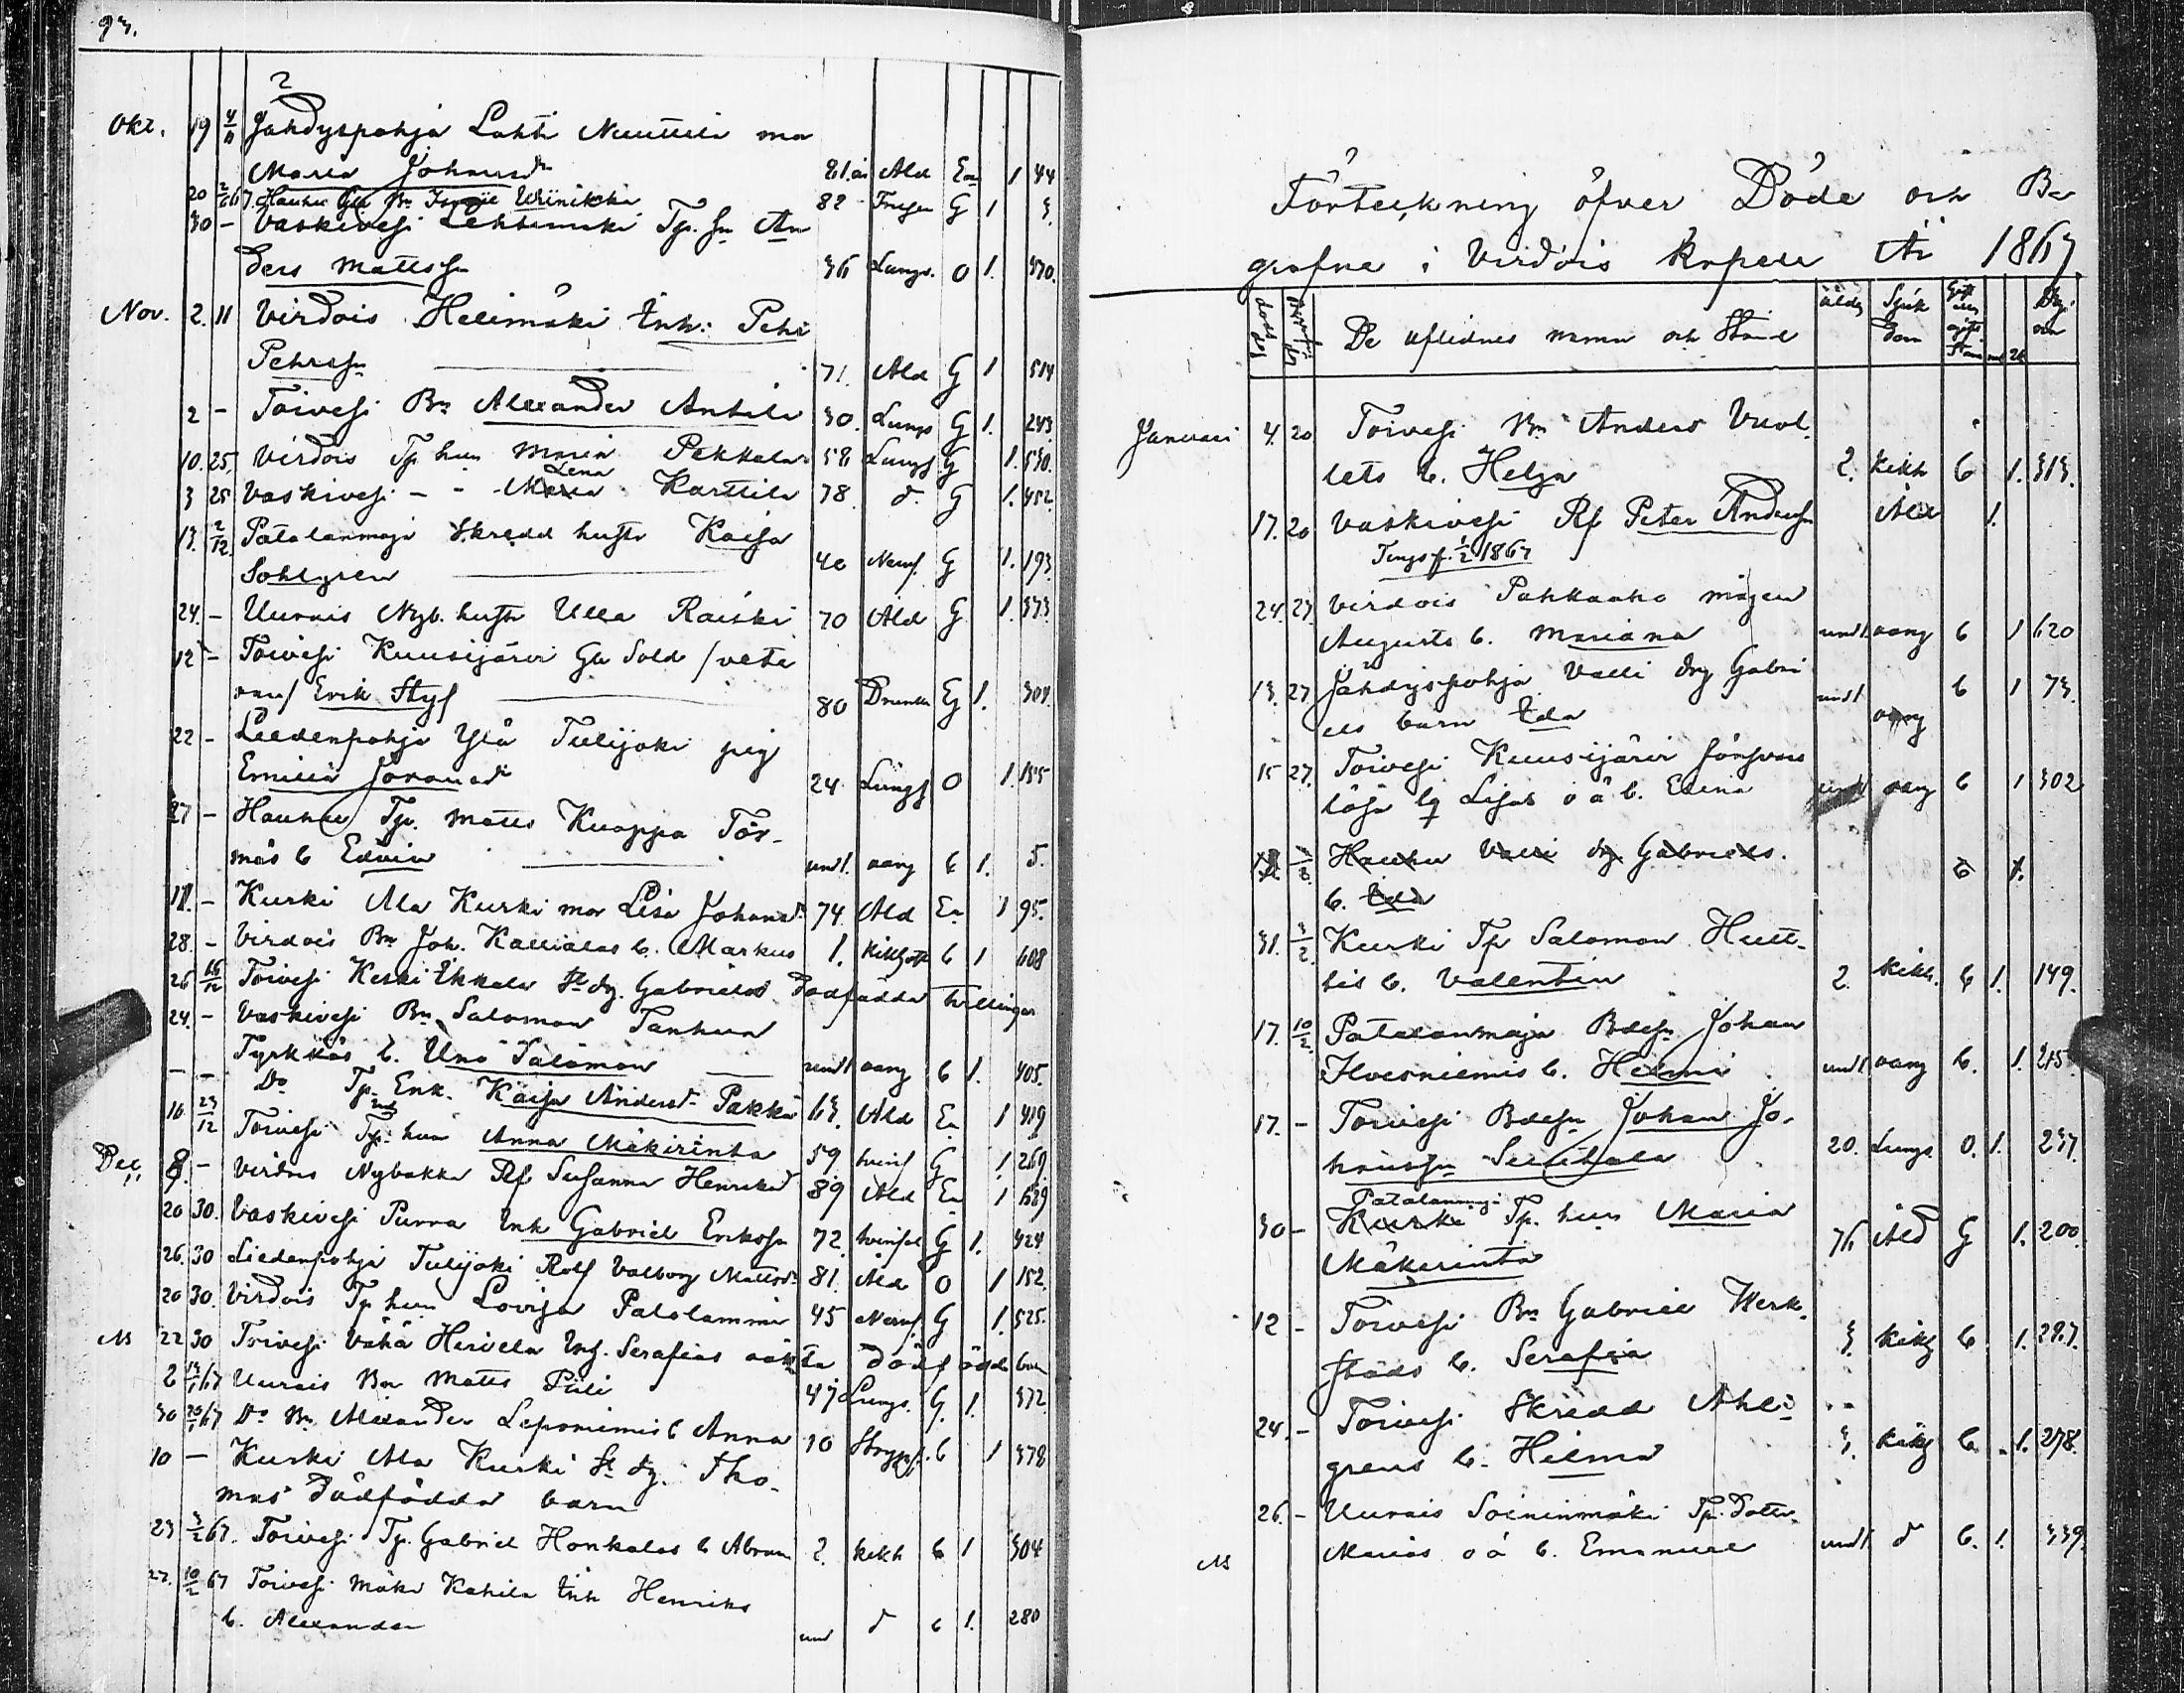 93.
Okt. 19 4/11 Jähdyspohja Lahti Nuuttila mor
Maria Johansdr 81 år Ald En 1 44
20 2/2 67. Hauhu 82 G 1 3.
30 - Vaskivesi Lehtimäki Tp. Sn An
ders Mattsson 36 Lungs. O 1. 370.
Nov. 2. 11 Virdois Helimäki Inh: Pehr
Pehrsson 71. Ald G 1 514
2 - Toivesi Bn Alexander Anttila 30. Lungs G 1. 243.
10. 25. Virdois Tp hun Maria Pekkala 58 Lungs G 1. 530.
Lena
3 25 Vaskivesi - - Maria Karttila 78. d. G 1. 452
13. 2/12. Patalanmaja Skredd hustr Kaisa
Sohlgren 40 Nervf. G 1. 193.
24. - Uurais Nyb. hustr Ulla Raiski 70 Ald G 1. 373
12 - Toivesi Kuusijärvi Gl. Sold /vete
ran/ Erik Styf 80 Drunkn Eg 1. 301
22 - Liedenpohja Ylä Tulijoki pig
Emilia Johansdr 24 Lungs O 1. 155
27 - Hauhu Tp. Matts Knappa Tör-
mäs b Edvin und 1. oang 6 1. 5.
18. - Kurki Ala Kurki mor Lisa Johansdr 74. Ald En 1 95.
28. - Virdois Bn Joh. Kallialas b. Markus 1. Kikhost 6 1 608
26 16/12 Toivesi Keski Ikkala St dg. Gabriels Dödfödda tvillingar
24. - Vaskivesi Bn Salomon Tanhua
Tyrkkös b. Uno Salomon und 1 oang 6 1. 405.
- - Do Tp. Enk. Kaisa Andersdr Pakka 63. Ald En 1 419
16. 23/12 Toivesi Tp. hun Anna Mäkirinta 59 G 1 269
Dec. 8. - Virdois Nybakka Rf Susanna Henriksd 89 Ald En 1 639
20 30. Vaskivesi Purra Inh Gabriel Eriksson 72. G 1. 424
26. 30 Liedenpohja Tulijoki Rotf Valborg Mattsdr 81. Ald O 1 152.
20 30. Virdois Tp hun Lovisa Patolammi 45 Nervf G 1. 525.
Ms 22 30 Toivesi Vähä Hirvela Inh. Serafias oäkta Dödfödda barn
6 13/1 67 Uurais Bn Matts Pili 47 Lungs. G. 1. 372
30 20/1 67 Do Bn Alexander Leponiemis b Anna 10 Strypsj. 6 1 378
10 - Kurki Ala Kurki St dg. Tho-
mas Dödfödda barn
23 3/2 67. Toivesi Tp. Gabriel Honkalas b Abram 2. kikh 6 1 304
27. 10/2 67 Toivesi Mäki Kahila Inh Henriks
b. Alexander und d 6 1. 280
Förteckning öfver Döde och Be
grafne i Virdois kapell År 1867
De aflidnes namn och Stånd ålder Sjuk dom
Januari 4. 20 Toivesi Bn Anders Vuol
lets b. Helga 2. Kikh 6 1. 313.
17. 20 Vaskivesi Rf Peter Andersson Ald 1.
1/2 1867
24. 27. Virdois Pakkaaho mågen
Augusts b. Mariana und 1. oang 6 1 620
13. 27 Jähdyspohja Valli drg Gabri
els barn Ida und 1 oang 6 1 73.
15 27. Toivesi Kuusijärvi försvars
lösa Lisas o ä b. Elina und oang 6 1 302
Hauhu Valli drg Gabriels. 6 1.
b. Ida
31. 3/2. Kurki Tp Salomon Hutt-
tis b. Valentin 2. Kikh. 6 1. 149.
17. 10/2. Patalanmaja Bdessn Johan
Ilvesniemis b. Helmi und 1 oang 6. 1. 215.
17. - Toivesi Bdessn Johan Jo-
hansson Seettala 20. Lungs O. 1. 237.
Patalanmaja
30 - Kurki Tp. hun Maria
Mäkirinta 76 Ald G 1. 200.
12 - Toivesi Bn Gabriel Werk
stads b. Serafia 3. Kikh 6 1. 297.
24. - Toivesi Skredd Ahl-
grens b. Hilma 3. Kikh 6 1. 278.
26. - Uurais Soininmäki Tp. Dotter
Ms Marias o ä b. Emanuel und 1 d 6. 1. 339.